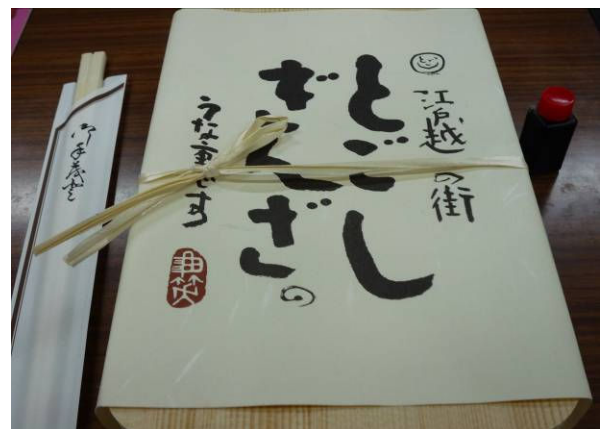 江戸越の街
とごし
ぎんざの
うな重です
御手茂登